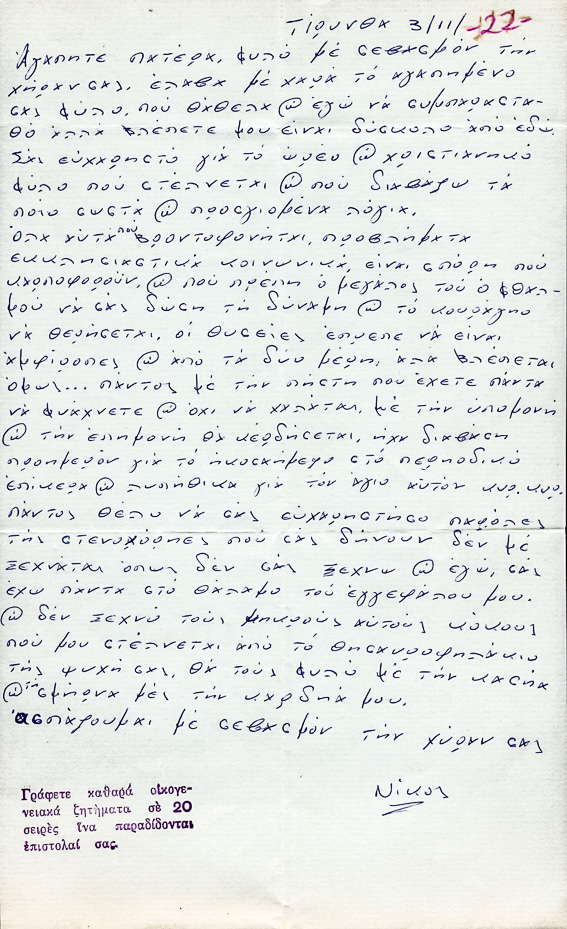 Τίρυνθα 3/11/ -22-
Ἀγαπητέ πατέρα, φιλῶ μέ σεβασμόν τήν
χήραν σας, ἔλαβα με χαρά τό αγαπημένο
σας φύλο, πού θάθελα @ ἐγώ νά συμπαραστα-
θῶ ἀλλά βλέπετε μου εἶναι δύσκολο ἀπό ἐδῶ.
Σᾶς εὐχαρηστό γιά τό ὡρέο @ χριστιανικό
φύλο πού στέλνεται @ πού διαβάζω τά
ποιο σωστά @ προσγιομένα λόγια.
Ὅλα αὐτά που βροντοφονήται, προβλήματα
εκκλησιαστικά κοινωνικά, εἶναι σπόρη πού
καρποφοροῦν, @ πού πρέπη ὁ μεγάλος τοῦ ὁ φθαλ-
μού νά σᾶς δώση τή δύναμη @ τό κουράγηο
νά θερήσεται, οἱ θυσείες ἔπρεπε νά εἶναι
ἀμφίροπες @ ἀπό τά δύο μέρη, ἀλλά βλέπεται
ὅμως... πάντος μέ τήν πήστη που ἔχετε πάντα
νά φτιάχνετε @ ὄχι νά χαλᾶται, μέ τήν ὑπομονή
@ τήν ἐπημονή θά κερδήσεται, ἡχα διαβάση
προημερόν γιά τό ἠκοσαήμερο στό περηοδικό
ἐπίκερα @ λυπήθικα γιά τον ἄγιο αὐτόν κυρ. κυρ.
πάντος θέλω νά σᾶς εὐχαρηστήσο παρόλες
τῆς στενοχόρηες πού σᾶς δήνουν δέν μέ
ξεχνᾶται ὅπως δέν σᾶς ξεχνῶ @ ἐγώ, σᾶς
ἔχω πάντα στό θάλαμο τοῦ ἐγγεφάλου μου.
@ δέν ξεχνῶ τούς μικρούς αὐτούς κόκους
πού μου στέλνεται ἀπό τό θησαυροφηλάκιο
τῆς ψυχή σας, θά τούς φυλῶ μέ τήν κασήα
@ τη σμήρνα μές τήν καρδηά μου.
ἀσπάζουμαι μέ σεβασμόν τήν χύραν σας
Νίκος
Γράφετε καθαρά οἰκογε-
νειακά ζητήματα σέ 20
σειρές ἵνα παραδίδονται
ἐπιστολαί σας.